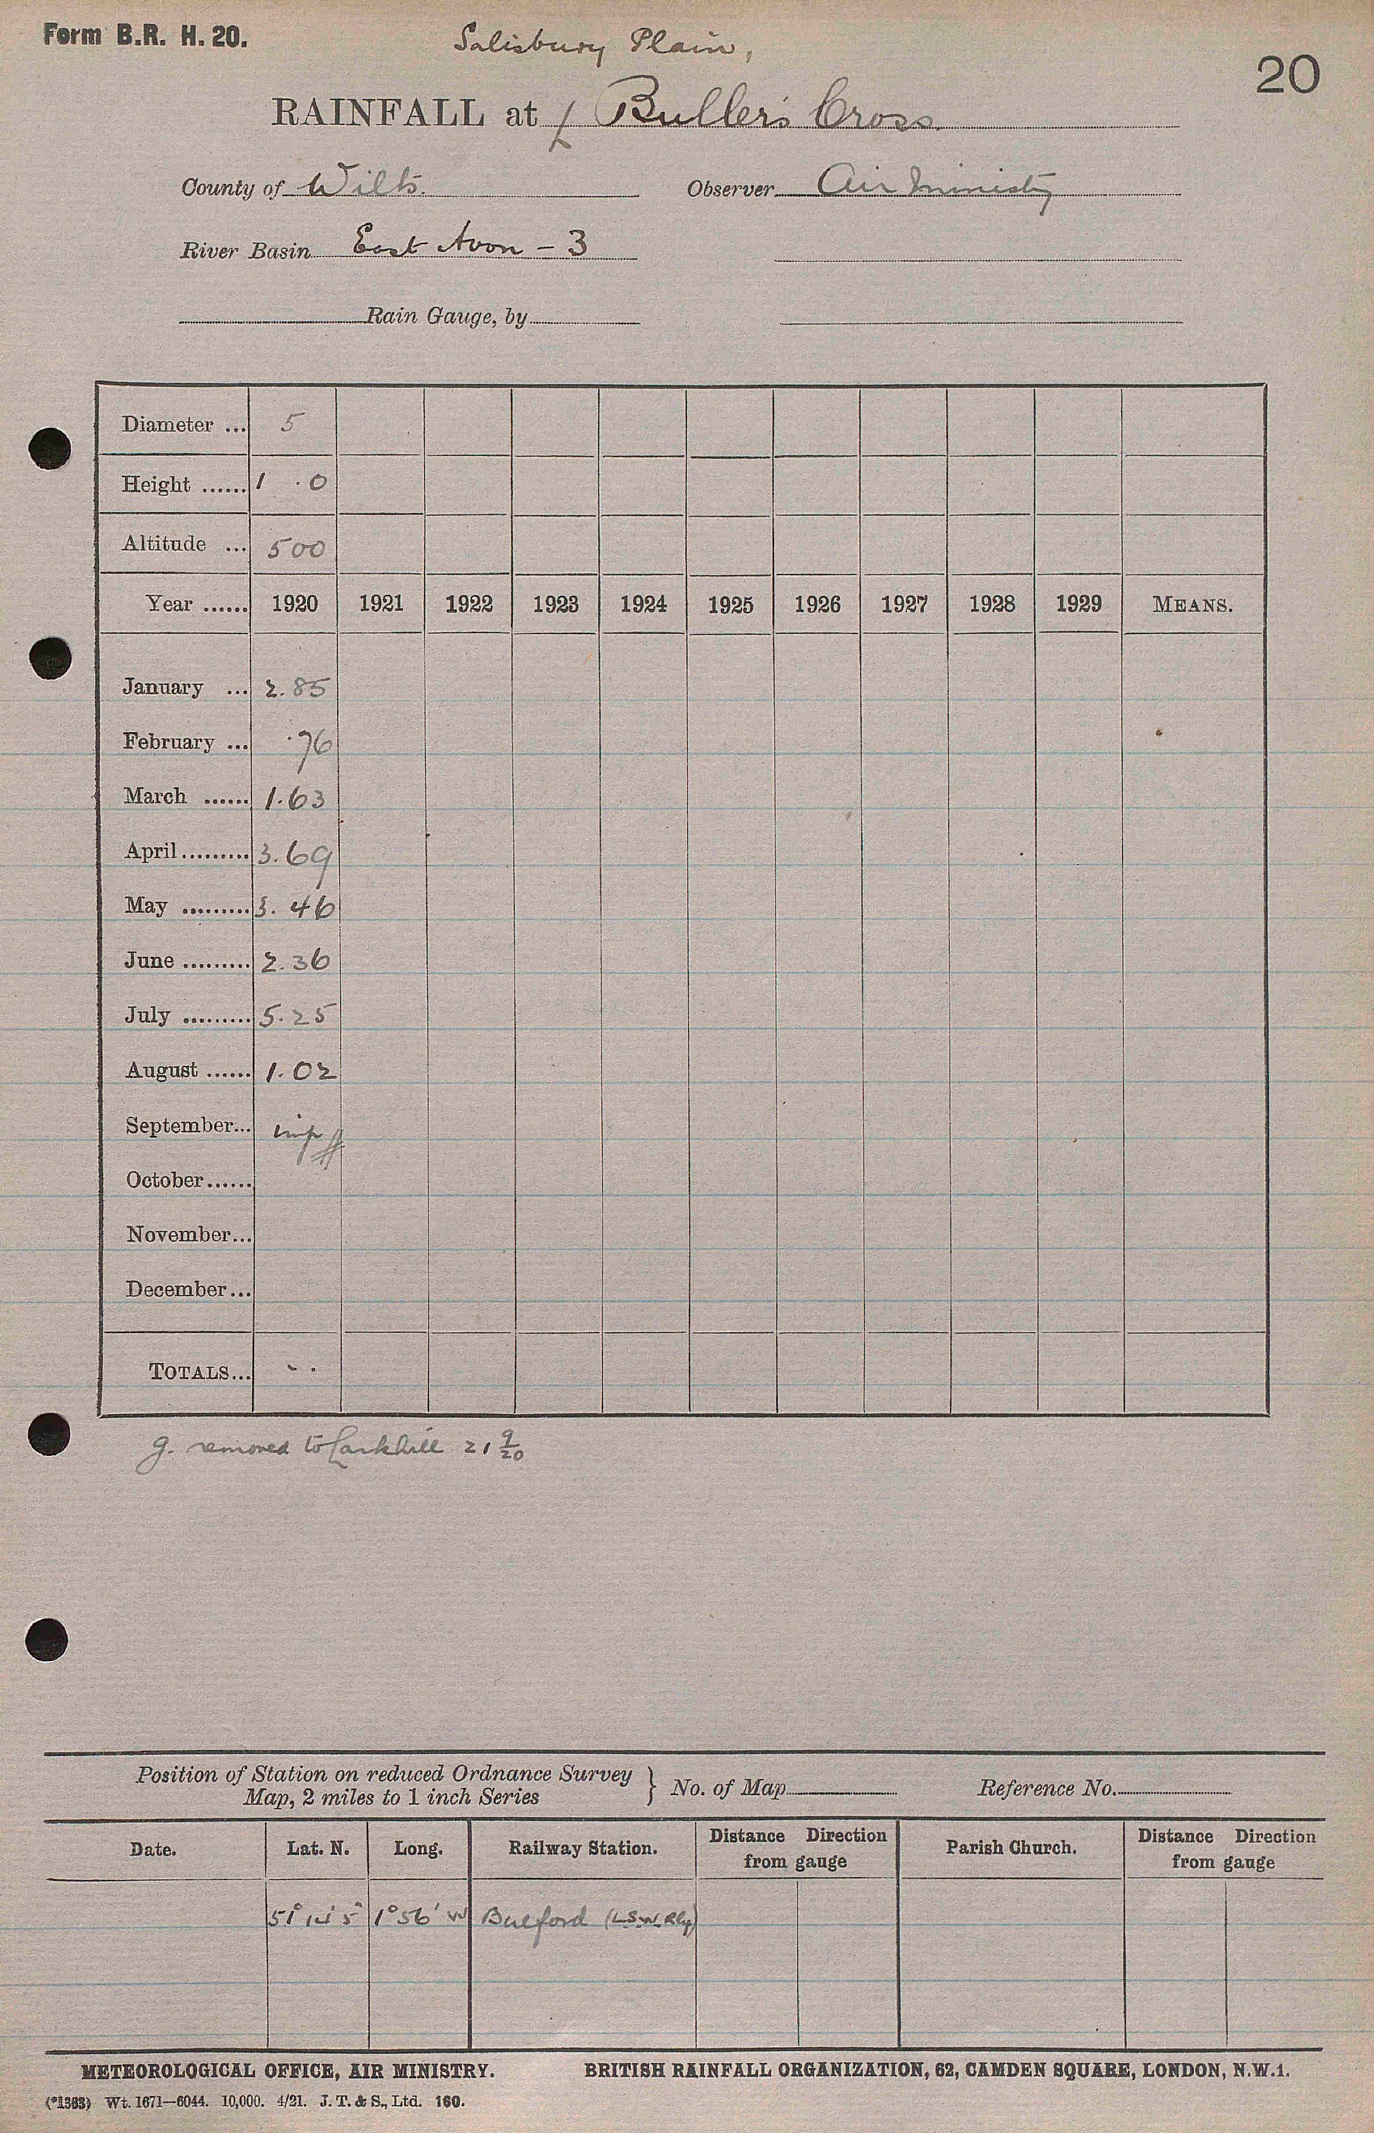 Form B.R. H. 20.
20
Salisbury Plain,
RAINFALL at Buller's Cross.
County of Wilts. Observer Air Ministry
River Basin East Avon - 3
Rain Gauge, by
Diameter ... 5
Height ...... 1 .0
Altitude ... 500
Year ...... 1920 1921 1922 1923 1924 1925 1926 1927 1928 1929 MEANS.
January ... 2.85
February ... .76
March ...... 1.63
April ......... 3.69
May ......... 3.46
June ......... 2.36
July ......... 5.25
August ...... 1.02
September... imp
October......
November...
December...
TOTALS... - .
g. removed to Larkhill 21 9/20
Position of Station on reduced Ordnance Survey
Map, 2 miles to 1 inch Series } No. of Map Reference No.
Date. Lat. N. Long. Railway Station. Distance Direction from gauge Parish Church. Distance Direction from gauge
51° 14' 5" 1° 56' W Bulford (L.S.W. Rly)
METEOROLOGICAL OFFICE, AIR MINISTRY. BRITISH RAINFALL ORGANIZATION, 62, CAMDEN SQUARE, LONDON, N.W.1.
(*1383) Wt. 1671—6044. 10,000. 4/21. J. T. & S., Ltd. 160.